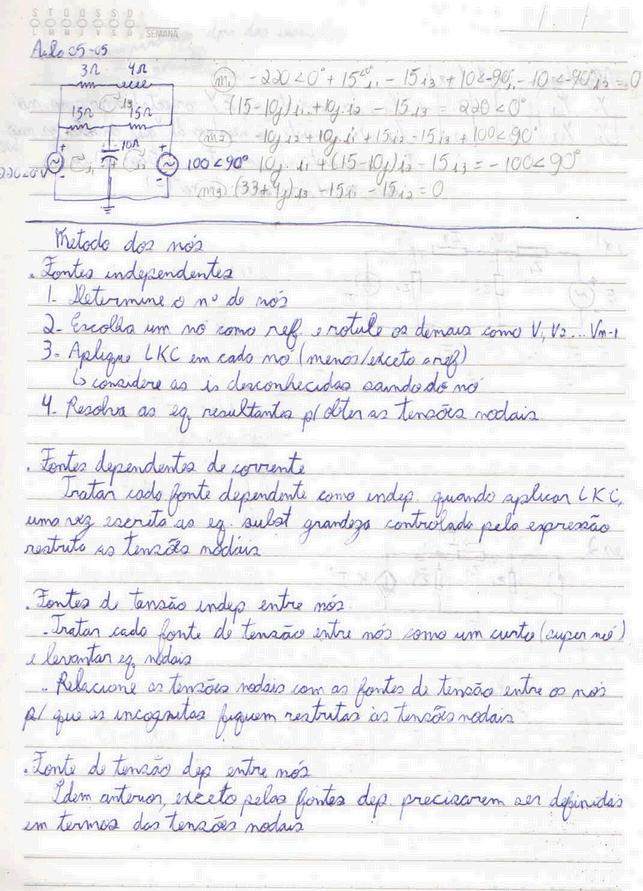 S T Q Q S S D
SEMANA
Aula 05-05
3Ω 4Ω
m1 -220<0° + 15<0° i1 - 15 i3 + 10<-90 i1 - 10<-90° i2 = 0
15Ω i3 15Ω
(15-10j) i1 + 10j i2 - 15 i3 = 220<0°
m2 -10j i2 + 10j i1 + 15 i2 - 15 i3 + 100<90°
-10Ω
220<0°V i1 i2 100<90° 10j i1 + (15-10j) i2 - 15 i3 = -100<90°
m3 (33+4j) i3 - 15 i1 - 15 i2 = 0
Metodo dos nós
. Fontes independentes
1- Determine o nº de nós
2- Escolha um nó como ref. e rotule os demais como V1 V2 ... Vm-1
3- Aplique LKC em cada nó (menos/exceto a ref)
↳ considere as is desconhecidas saindo do nó
4- Resolva as eq resultantes p/ obter as tensões nodais.
. Fontes dependentes de corrente
Tratar cada fonte dependente como indep. quando aplicar LKC,
uma vez escrita as eq. subst grandeza controlada pela expressão
restrita as tensões nodais
. Fontes de tensão indep entre nós.
. Tratar cada fonte de tensão entre nós como um curto (super nó)
e levantar eq. nodais
. Relacione as tensões nodais com as fontes de tensão entre os nós
p/ que as incognitas fiquem restritas às tensões nodais
. Fonte de tensão dep entre nós
Idem anterior, exceto pelas fontes dep. precisarem ser definidas
em termos das tensões nodais